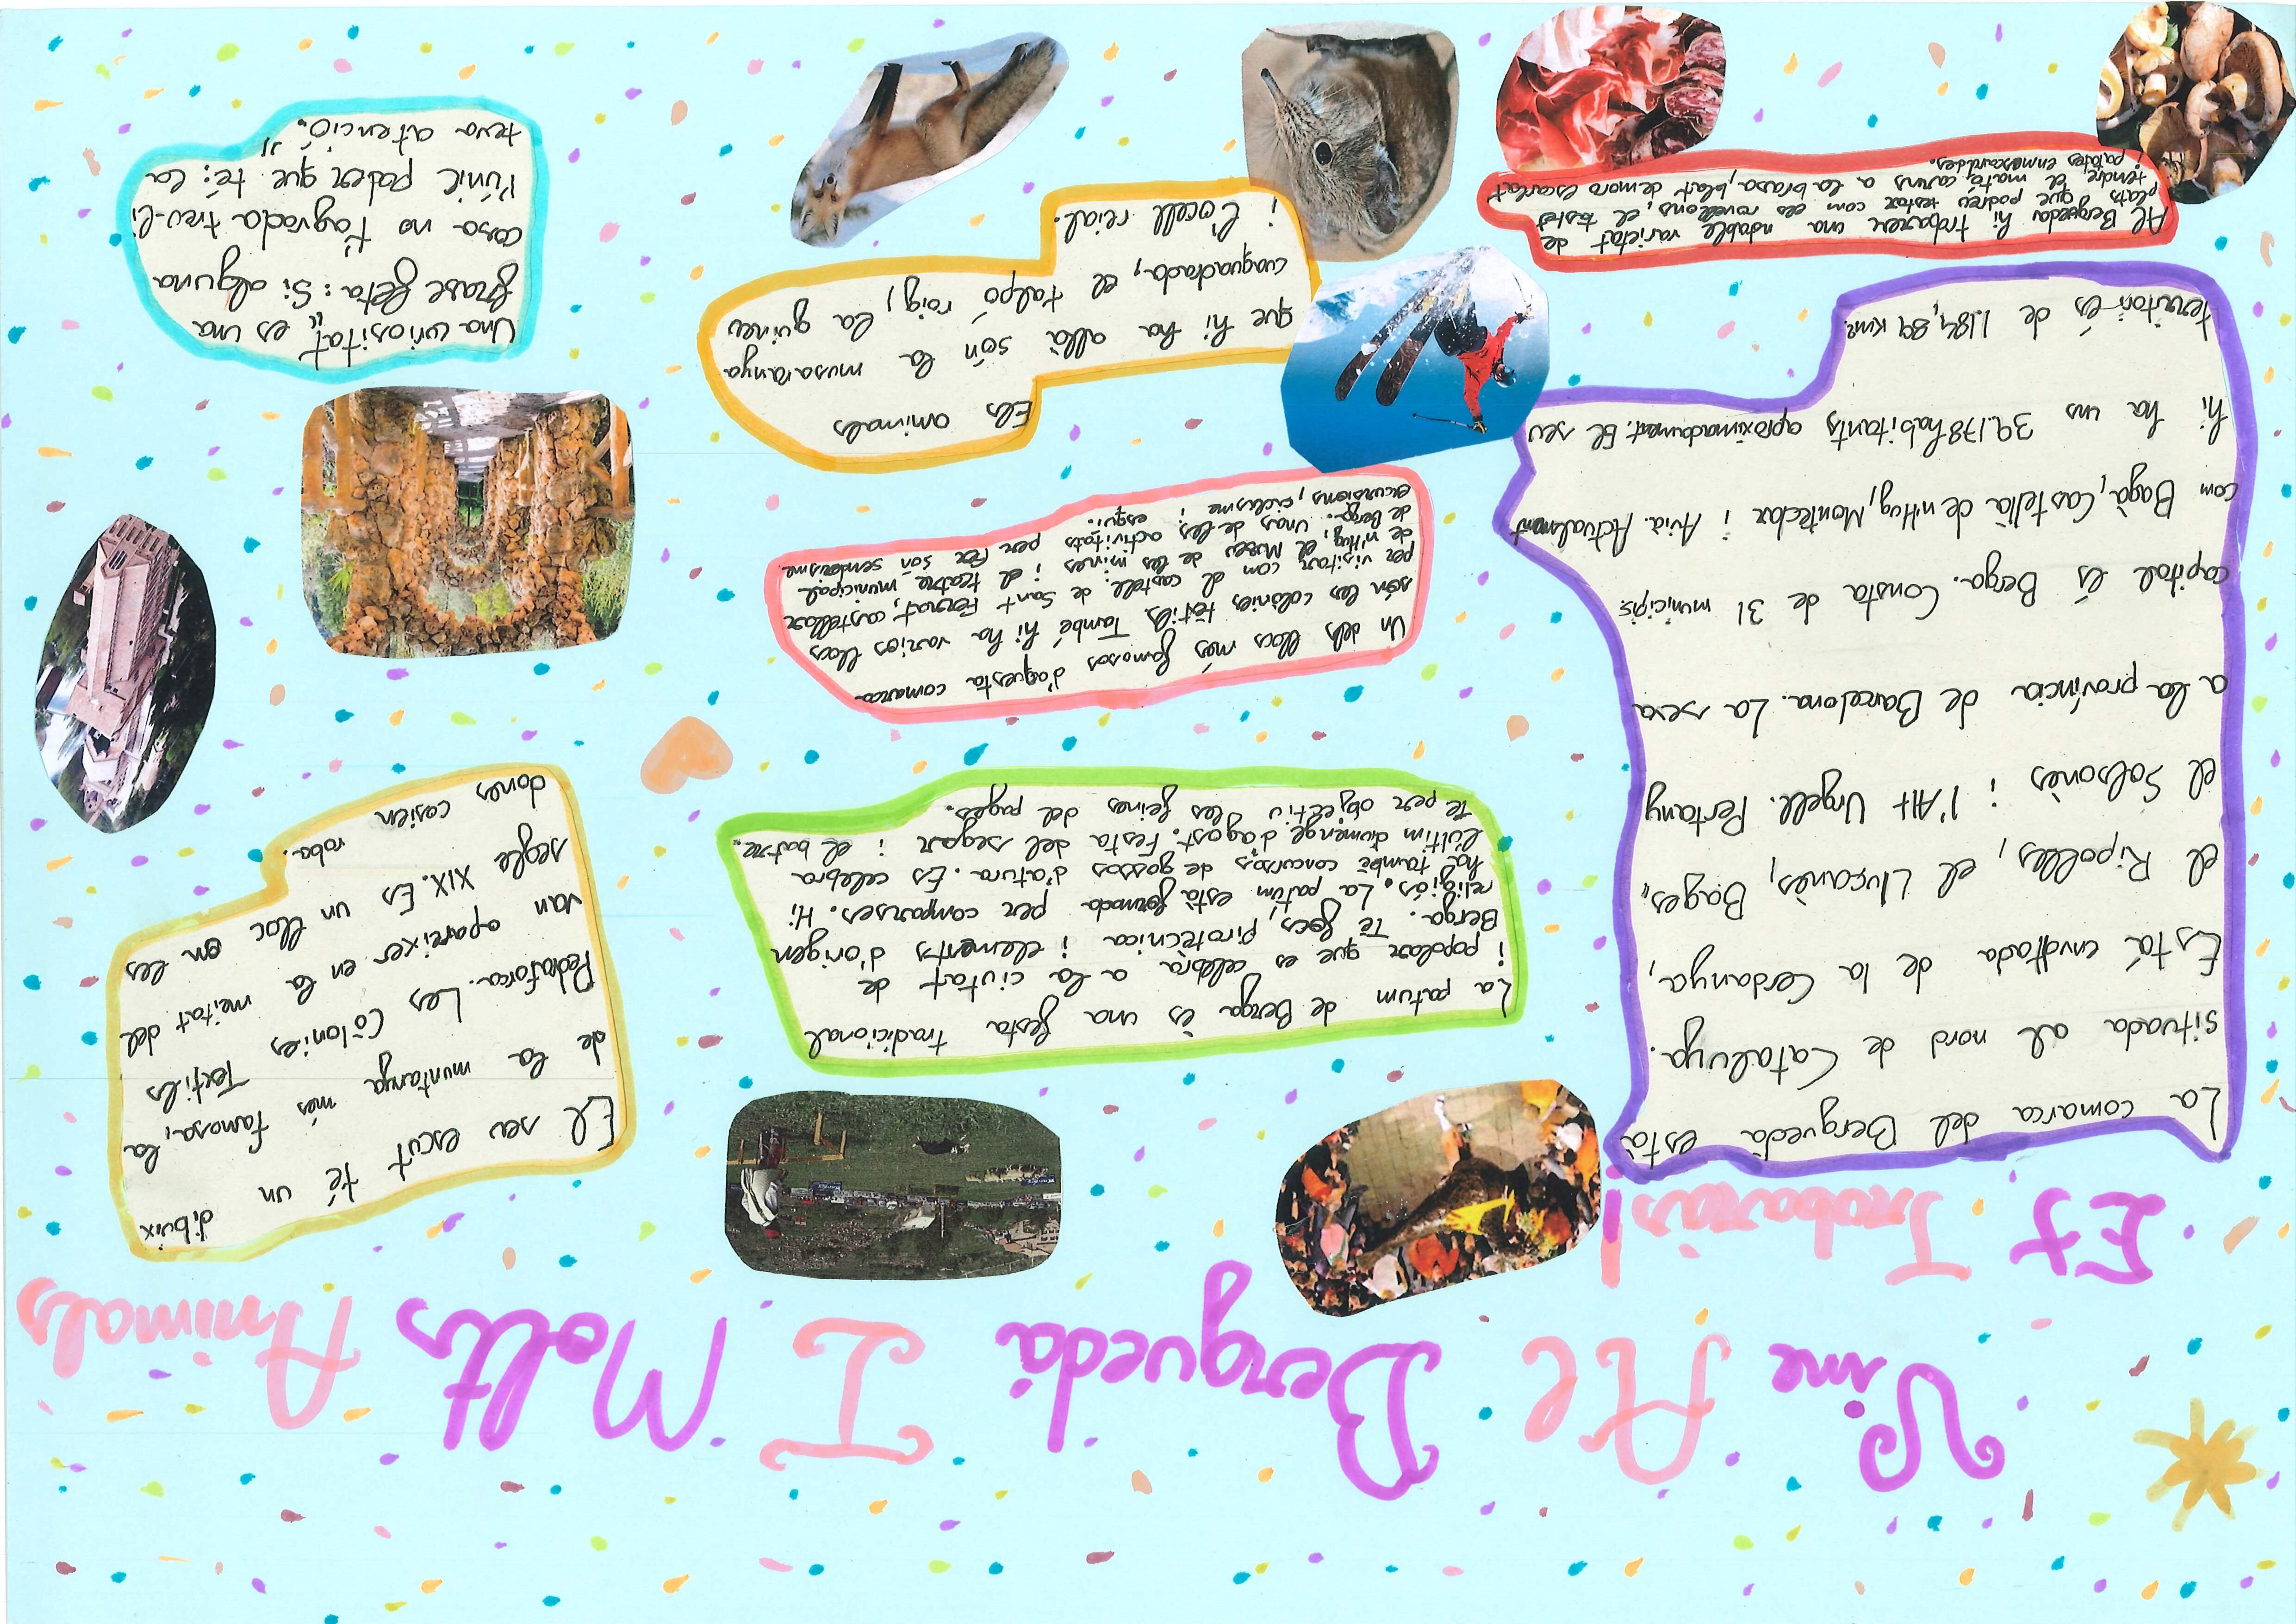 Vine Al Berguedà I Molts Animals
Et Trobaràs!
La comarca del Berguedà està
situada al nord de Catalunya.
Està envoltada de la Cerdanya,
el Ripollès, el Lluçanès, Bages,
el Solsonès i l'Alt Urgell. Pertany
a la província de Barcelona. La seva
capital és Berga. Consta de 31 municipis
com Bagà, Castellà de n'Hug, Montclar i Avià. Actualment
hi ha uns 39.178 habitants aproximadament. El seu
territori és de 1.184,89 km².
Al Berguedà hi trobareu una ndable varietat de
plats que podreu tastar com els rovellons, el tastet
tendre el mató, carns a la brasa, blat de moro escairat
patates enmascarades.
La patum de Berga és una festa tradicional
i popular que es celebra a la ciutat de
Berga. Té focs, pirotècnica i elements d'origen
religiós. La patum està formada per comparses. Hi
ha també concursos de gossos d'atura. Es celebra
l'últim dumenge d'agost. Festa del segar i el batre.
Té per objectiu les feines del pagès.
Un dels llocs més famosos d'aquesta comarca
són les colònies tèxtils També hi ha varios llocs
per visitar com el castell de Sant Ferrat, castellar
de n'Hug, el Museu de les mines i el teatre municipal.
de Berga. Unas de les activitats per fer són senderisme
excursions, ciclisme i esquí.
Els animals
que hi ha allà són la musaranya
cuaquadrada, el talpó roig, la guineu
i l'ocell reial.
El seu escut té un dibuix
de la muntanya més famosa, la
Pedraforca. Les Colonies Textils
van apareixer en la meitat del
segle XIX. Es un lloc on les
dones cosien roba.
Una curiositat,, es una
frase feta: Si alguna
cosa no t'agrada treu-li
l'únic poder que té: la
teva atenció.,,